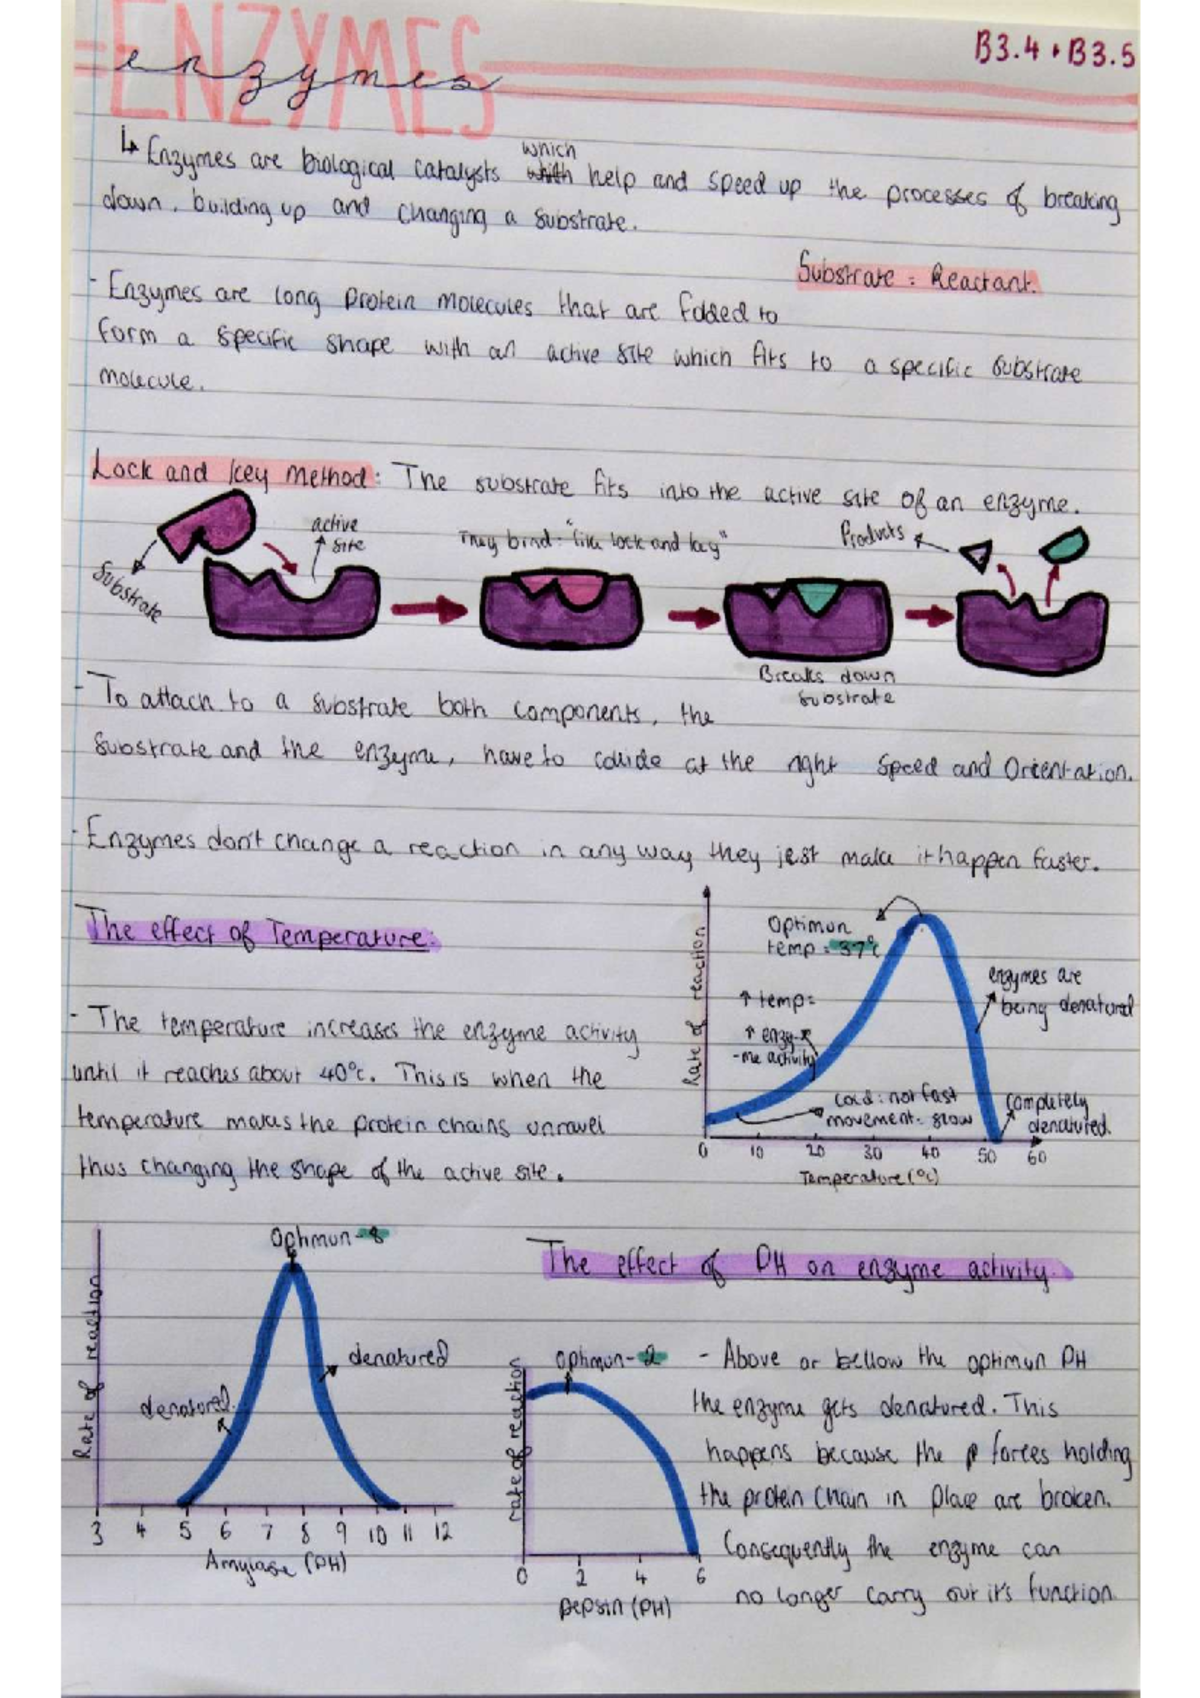 ENZYMES
enzymes
B3.4 + B3.5
↳ Enzymes are biological catalysts which help and speed up the processes of breaking
down, building up and changing a substrate.
Substrate = Reactant.
- Enzymes are long protein molecules that are folded to
form a specific shape with an active site which fits to a specific substrate
molecule.
Lock and key method: The substrate fits into the active site of an enzyme.
Substrate
active
site
They bind: "like lock and key"
Products
Breaks down
substrate
- To attach to a substrate both components, the
substrate and the enzyme, have to collide at the right speed and orientation.
- Enzymes don't change a reaction in any way they jest make it happen faster.
The effect of Temperature:
- The temperature increases the enzyme activity
until it reaches about 40°c. This is when the
temperature makes the protein chains unravel
thus changing the shape of the active site.
Rate of reaction
Optimun
temp = 37°c
↑ temp =
↑ enzy-
-me activity
enzymes are
being denatured
cold: not fast
movement - slow
completely
denatured.
0 10 20 30 40 50 60
Temperature (°c)
Optimun - 8
Rate of reaction
denatured
denatured
3 4 5 6 7 8 9 10 11 12
Amylase (PH)
The effect of PH on enzyme activity.
optimun - 2
rate of reaction
0 2 4 6
pepsin (PH)
- Above or bellow the optimun PH
the enzyme gets denatured. This
happens because the forces holding
the protein chain in place are broken.
Consequently the enzyme can
no longer carry out it's function.